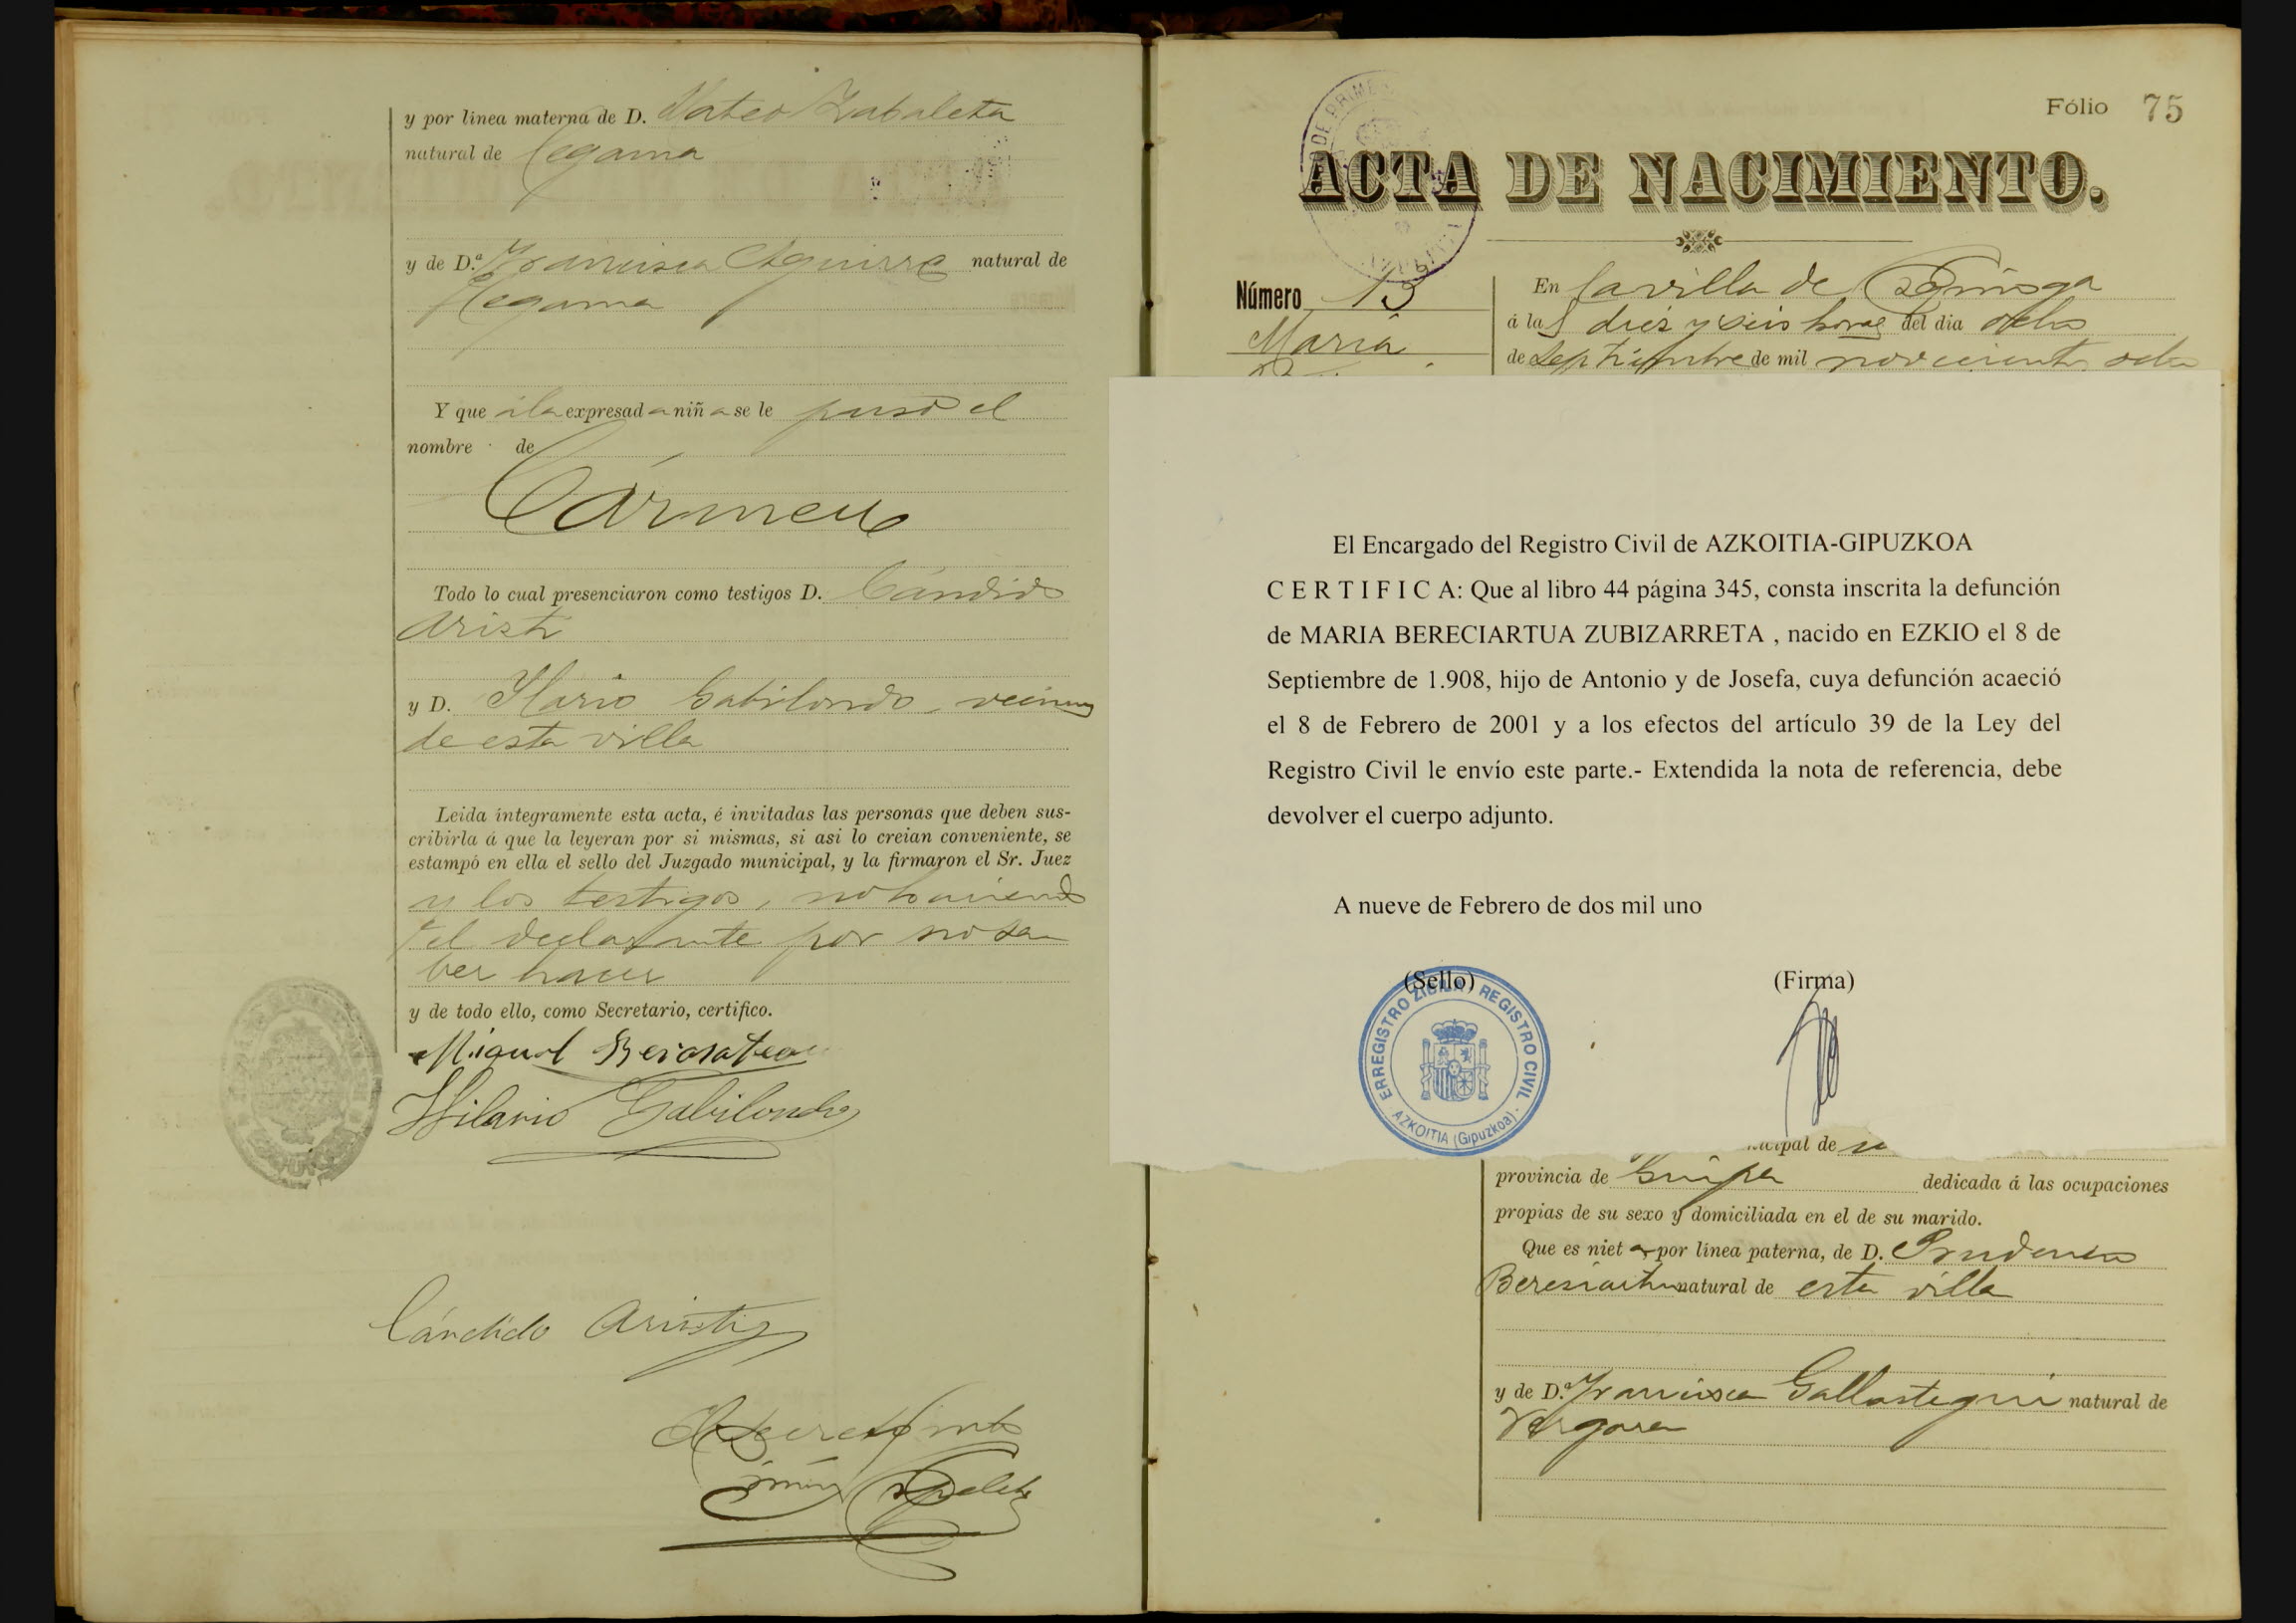 y por línea materna de D. Mateo Zabaleta
natural de Cegama
y de D.ª Francisca Aguirre natural de
Cegama
Y que á la expresad a niñ a se le puso el
nombre de
Cármen
Todo lo cual presenciaron como testigos D. Cándido
Aristi
y D. Ilario Gabilondo, vecinos
de esta villa
Leida íntegramente esta acta, é invitadas las personas que deben sus-
cribirla á que la leyeran por si mismas, si asi lo creian conveniente, se
estampó en ella el sello del Juzgado municipal, y la firmaron el Sr. Juez
y los testigos, no
el declarante por no sa
ber hacer
y de todo ello, como Secretario, certifico.
Miguel
Hilario Gabilondo
Cándido Aristi
Fólio 75
ACTA DE NACIMIENTO.
Número 13
María
En la villa de Ezquioga
á las diez y seis horas del dia ocho
de Septiembre de mil novecientos ocho
El Encargado del Registro Civil de AZKOITIA-GIPUZKOA
C E R T I F I C A: Que al libro 44 página 345, consta inscrita la defunción
de MARIA BERECIARTUA ZUBIZARRETA , nacido en EZKIO el 8 de
Septiembre de 1.908, hijo de Antonio y de Josefa, cuya defunción acaeció
el 8 de Febrero de 2001 y a los efectos del artículo 39 de la Ley del
Registro Civil le envío este parte.- Extendida la nota de referencia, debe
devolver el cuerpo adjunto.
A nueve de Febrero de dos mil uno
(Sello) (Firma)
ERREGISTRO ZIBILA REGISTRO CIVIL
AZKOITIA (Gipuzkoa)
cipal de
provincia de Guipa dedicada á las ocupaciones
propias de su sexo y domiciliada en el de su marido.
Que es niet a por línea paterna, de D. Prudencio
Bereciartua natural de esta villa
y de D.ª Francisca Gallastegui natural de
Vergara